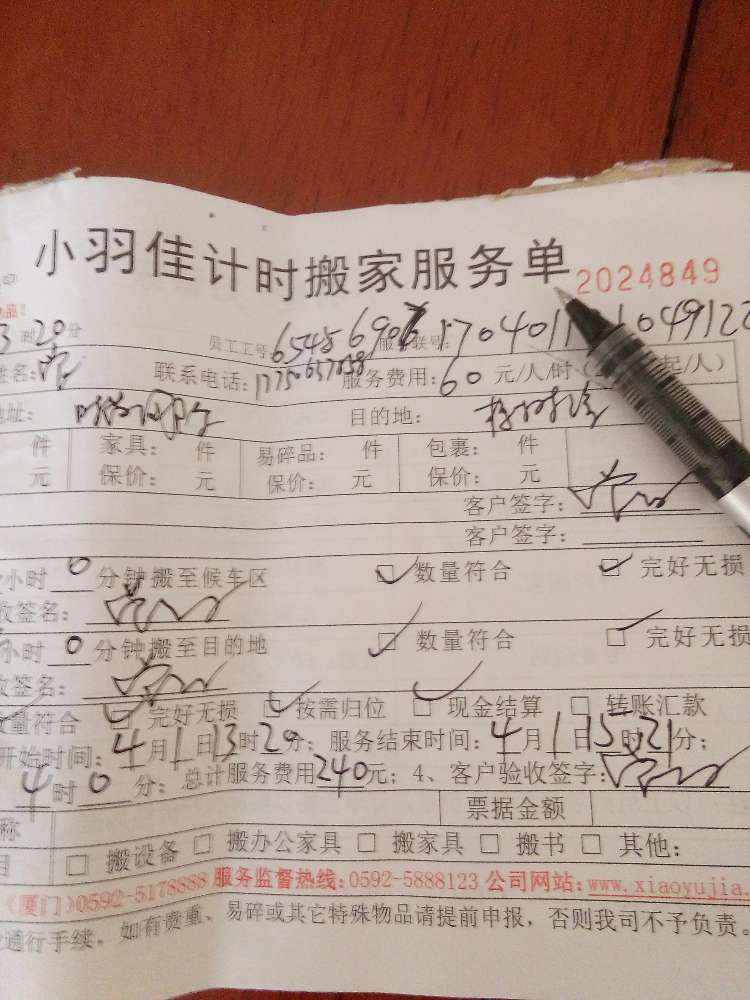 小羽佳计时搬家服务单 2024849
物品!
3时20分 员工工号 服务联号:
姓名: 联系电话: 服务费用:60元/人/时( 起/人)
地址: 目的地:
件 家具: 件 易碎品: 件 包裹: 件
元 保价: 元 保价: 元 保价: 元
客户签字:
客户签字:
小时0分钟搬至候车区 数量符合 完好无损
收签名:
小时0分钟搬至目的地 数量符合 完好无损
收签名:
数量符合 完好无损 按需归位 现金结算 转账汇款
开始时间:4月1日13时20分;服务结束时间:4月1日15时21分;
4时0分;总计服务费用240元;4、客户验收签字:
称 票据金额
目 搬设备 搬办公家具 搬家具 搬书 其他:
(厦门)0592-5178888 服务监督热线:0592-5888123 公司网站:www.xiaoyujia.
通行手续。如有贵重、易碎或其它特殊物品请提前申报,否则我司不予负责。